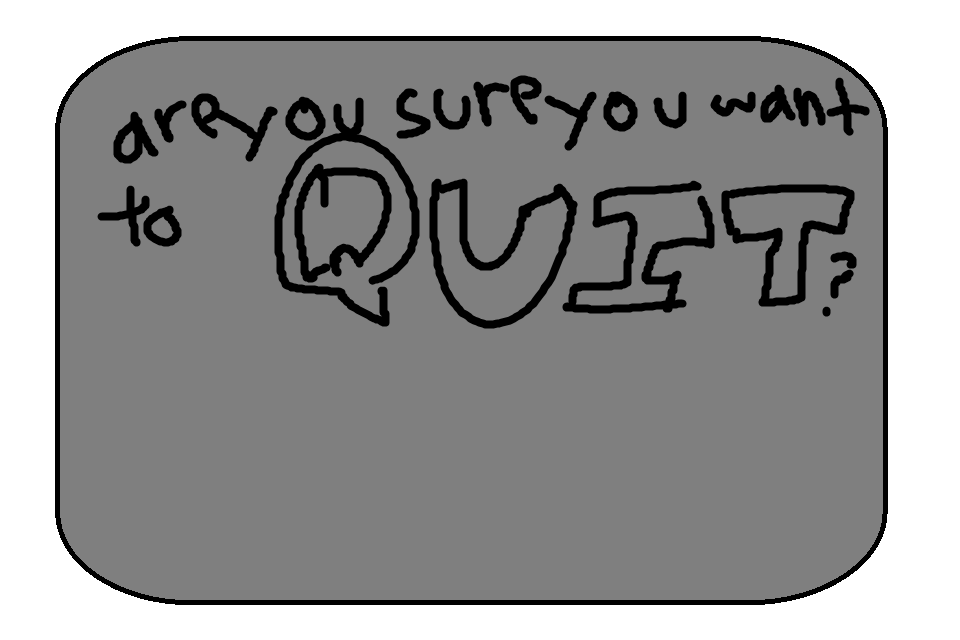 are you sure you want
to QUIT?